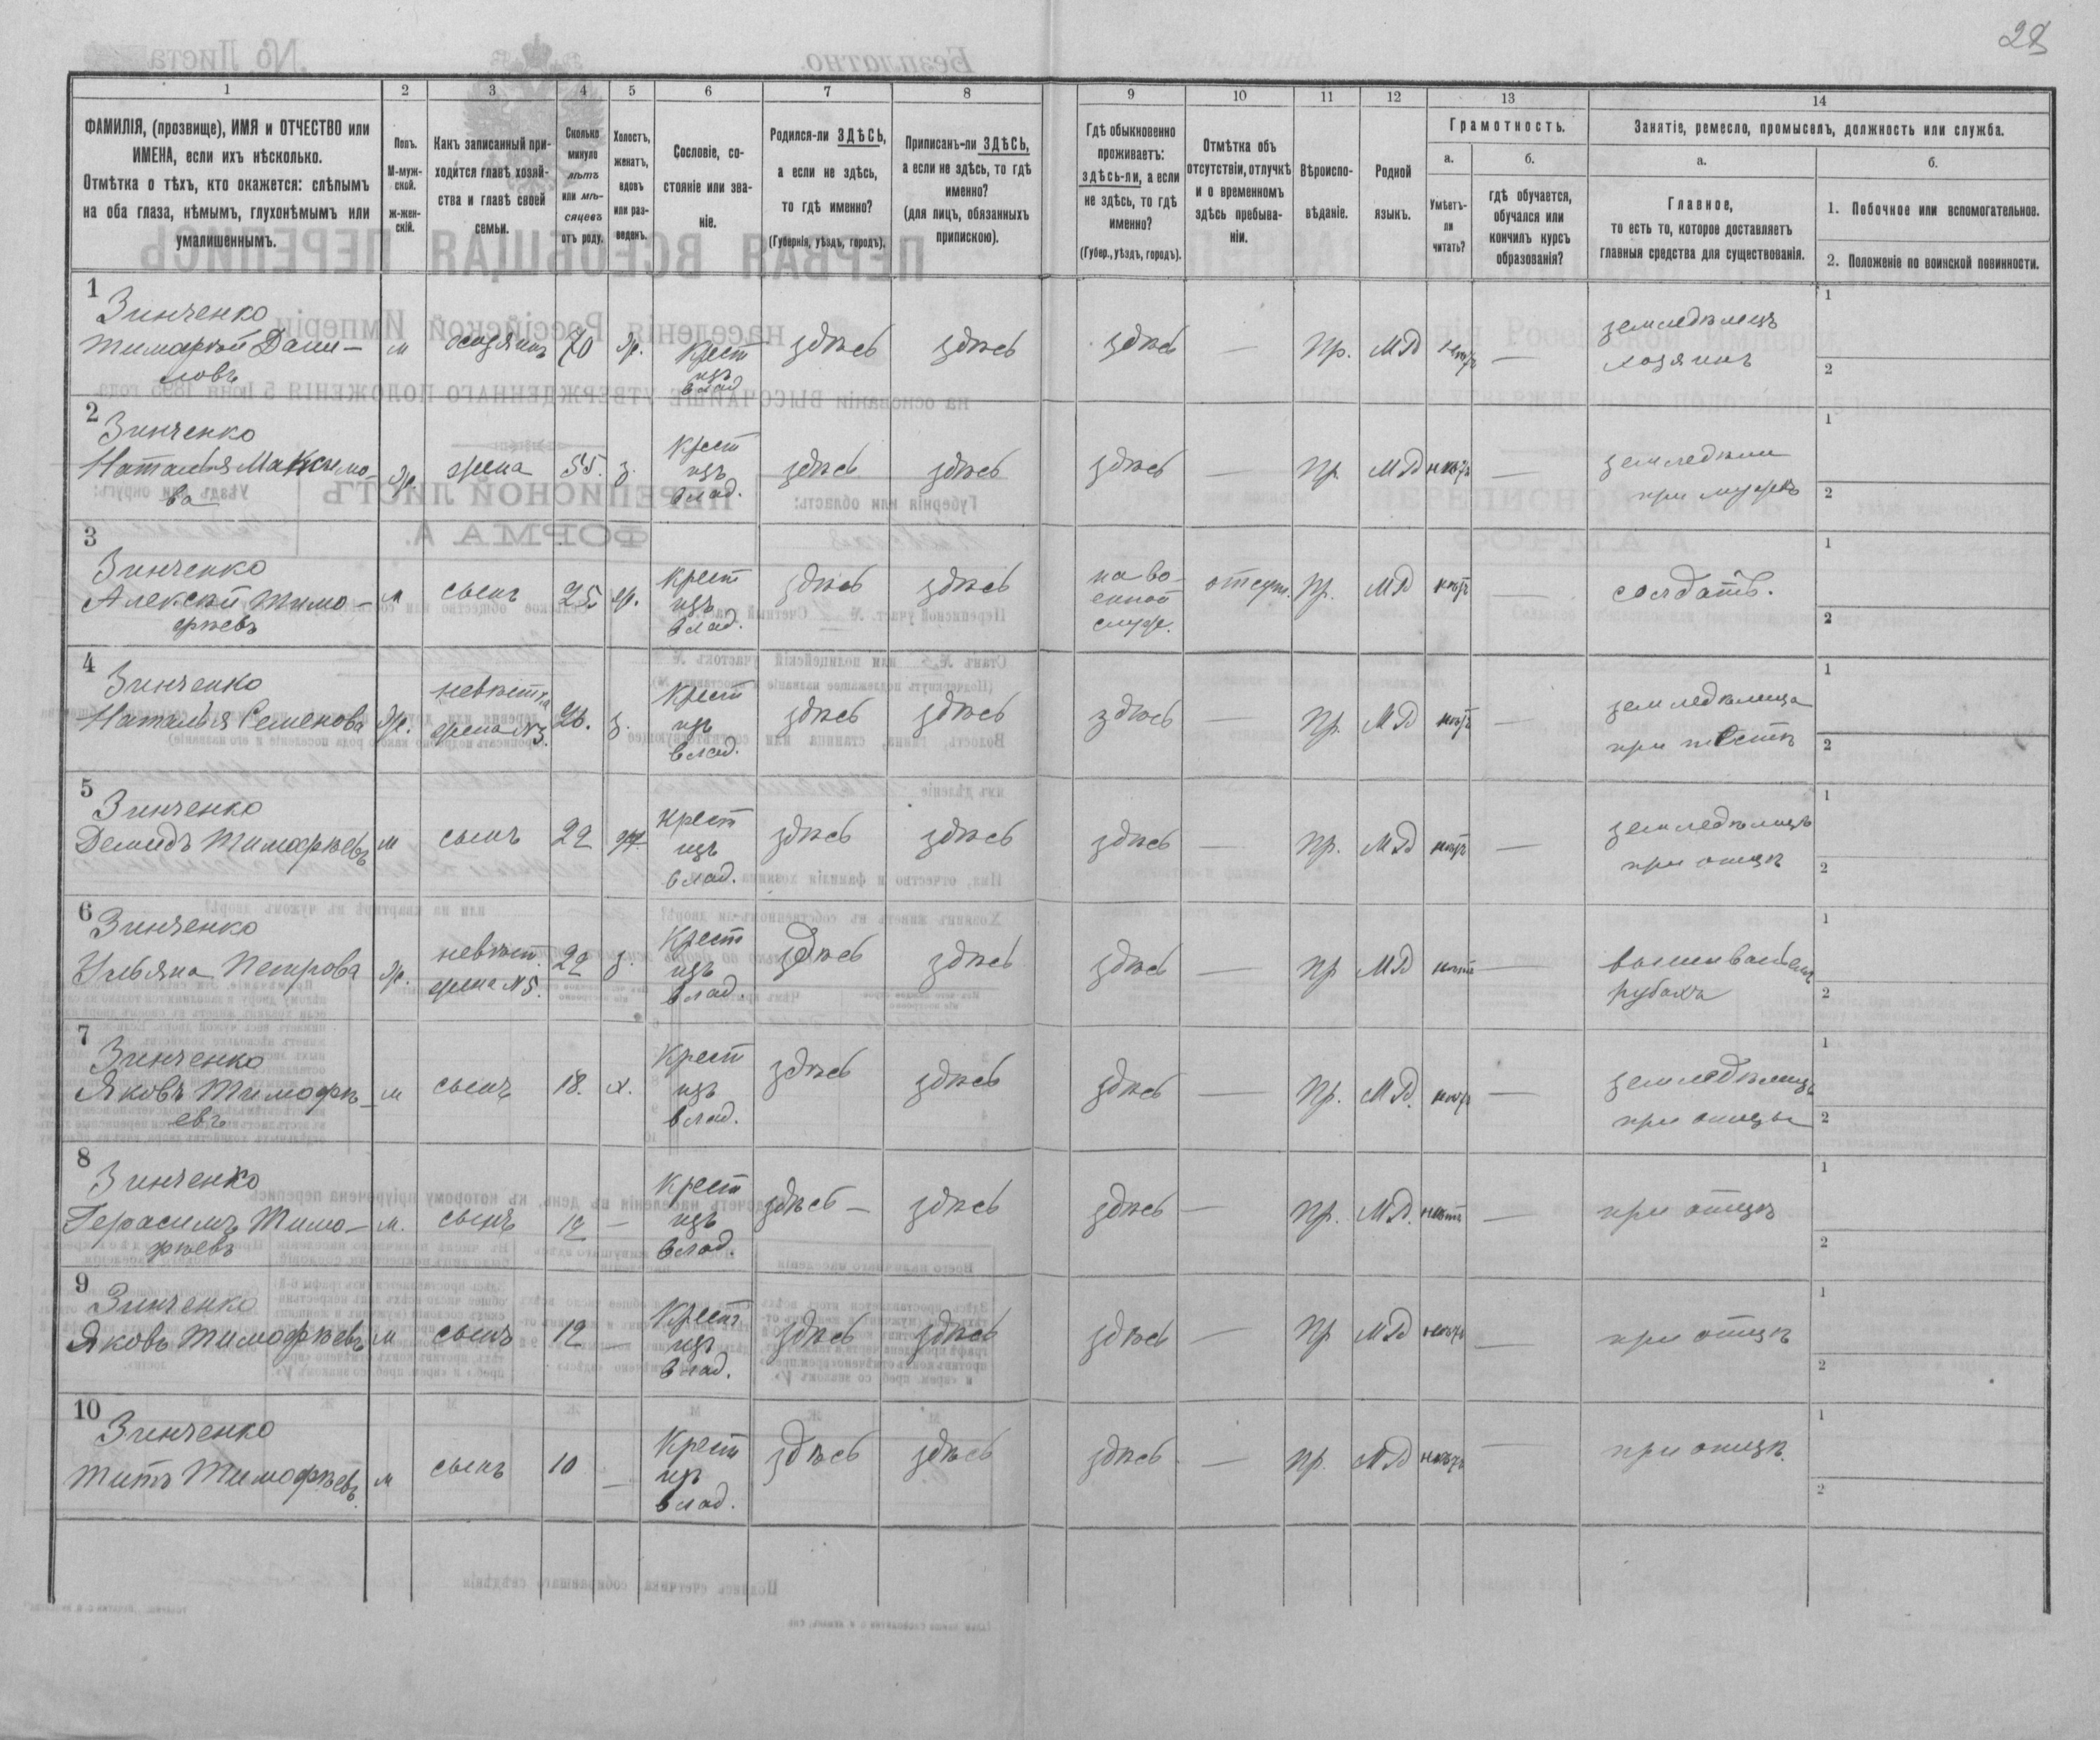 28
1 2 3 4 5 6 7 8 9 10 11 12 13 14
ФАМИЛІЯ, (прозвище), ИМЯ и ОТЧЕСТВО или
ИМЕНА, если ихъ нѣсколько.
Отмѣтка о тѣхъ, кто окажется: слѣпымъ
на оба глаза, нѣмымъ, глухонѣмымъ или
умалишеннымъ.
Полъ.
М-муж-
ской.
ж-жен-
скій.
Какъ записанный при-
ходится главѣ хозяй-
ства и главѣ своей
семьи.
Сколько
минуло
лѣтъ
или мѣ-
сяцевъ
отъ роду.
Холостъ,
женатъ,
вдовъ
или раз-
веденъ.
Сословіе, со-
стояніе или зва-
ніе.
Родился-ли ЗДѢСЬ,
а если не здѣсь,
то гдѣ именно?
(Губернія, уѣздъ, городъ).
Приписанъ-ли ЗДѢСЬ,
а если не здѣсь, то гдѣ
именно?
(для лицъ, обязанныхъ
припискою).
Гдѣ обыкновенно
проживаетъ:
здѣсь-ли, а если
не здѣсь, то гдѣ
именно?
(Губер., уѣздъ, городъ).
Отмѣтка объ
отсутствіи, отлучкѣ
и о временномъ
здѣсь пребыва-
ніи.
Вѣроиспо-
вѣданіе.
Родной
языкъ.
Грамотность.
а.
Умѣетъ-
ли
читать?
б.
гдѣ обучается,
обучался или
кончилъ курсъ
образованія?
Занятіе, ремесло, промыселъ, должность или служба.
а.
Главное,
то есть то, которое доставляетъ
главныя средства для существованія.
б.
1. Побочное или вспомогательное.
2. Положеніе по воинской повинности.
1
Зинченко
Тимофей Дани-
ловъ
м хозяинъ 70 ж. Крест
изъ
влад
здѣсь здѣсь здѣсь — Пр. МР нѣтъ — земледѣлецъ
хозяинъ
1
2
2
Зинченко
Наталья Максимо-
ва
ж. жена 55. з. Крест
изъ
влад.
здѣсь здѣсь здѣсь — Пр. МР нѣтъ — земледѣли
при мужѣ
1
2
3
Зинченко
Алексѣй Тимо-
фѣевъ
м сынъ 25 ж. Крест
изъ
влад.
здѣсь здѣсь на во-
енной
служ.
отсут. Пр. МР нѣтъ — солдатъ.
1
2
4
Зинченко
Наталья Семенова ж. невѣстка
жена N3. 26. з. Крест
изъ
влад.
здѣсь здѣсь здѣсь — Пр. МР нѣтъ — земледѣлица
при тестѣ
1
2
5
Зинченко
Демидъ Тимофѣевъ м сынъ 22 ж. Крест
изъ
влад.
здѣсь здѣсь здѣсь — Пр. МР нѣтъ — земледѣлецъ
при отцѣ
1
2
6
Зинченко
Ульяна Петрова ж. невѣст.
жена N5. 22 з. Крест
изъ
влад.
здѣсь здѣсь здѣсь — Пр МР нѣтъ —
рубахъ
1
2
7
Зинченко
Яковъ Тимофѣ-
евъ
м сынъ 18. х. Крест
изъ
влад.
здѣсь здѣсь здѣсь — Пр. МР. нѣтъ — земледѣлецъ
при отцѣ
1
2
8
Зинченко
Герасимъ Тимо-
фѣевъ
м. сынъ 12 — Крест
изъ
влад.
здѣсь — здѣсь здѣсь — Пр. МР. нѣтъ — при отцѣ
1
2
9
Зинченко
Яковъ Тимофѣевъ м сынъ 12 — Крест
изъ
влад.
здѣсь здѣсь здѣсь — Пр МР нѣтъ — при отцѣ
1
2
10
Зинченко
Титъ Тимофѣевъ. м сынъ 10 — Крест
изъ
влад.
здѣсь здѣсь здѣсь — Пр. МР нѣтъ — при отцѣ.
1
2